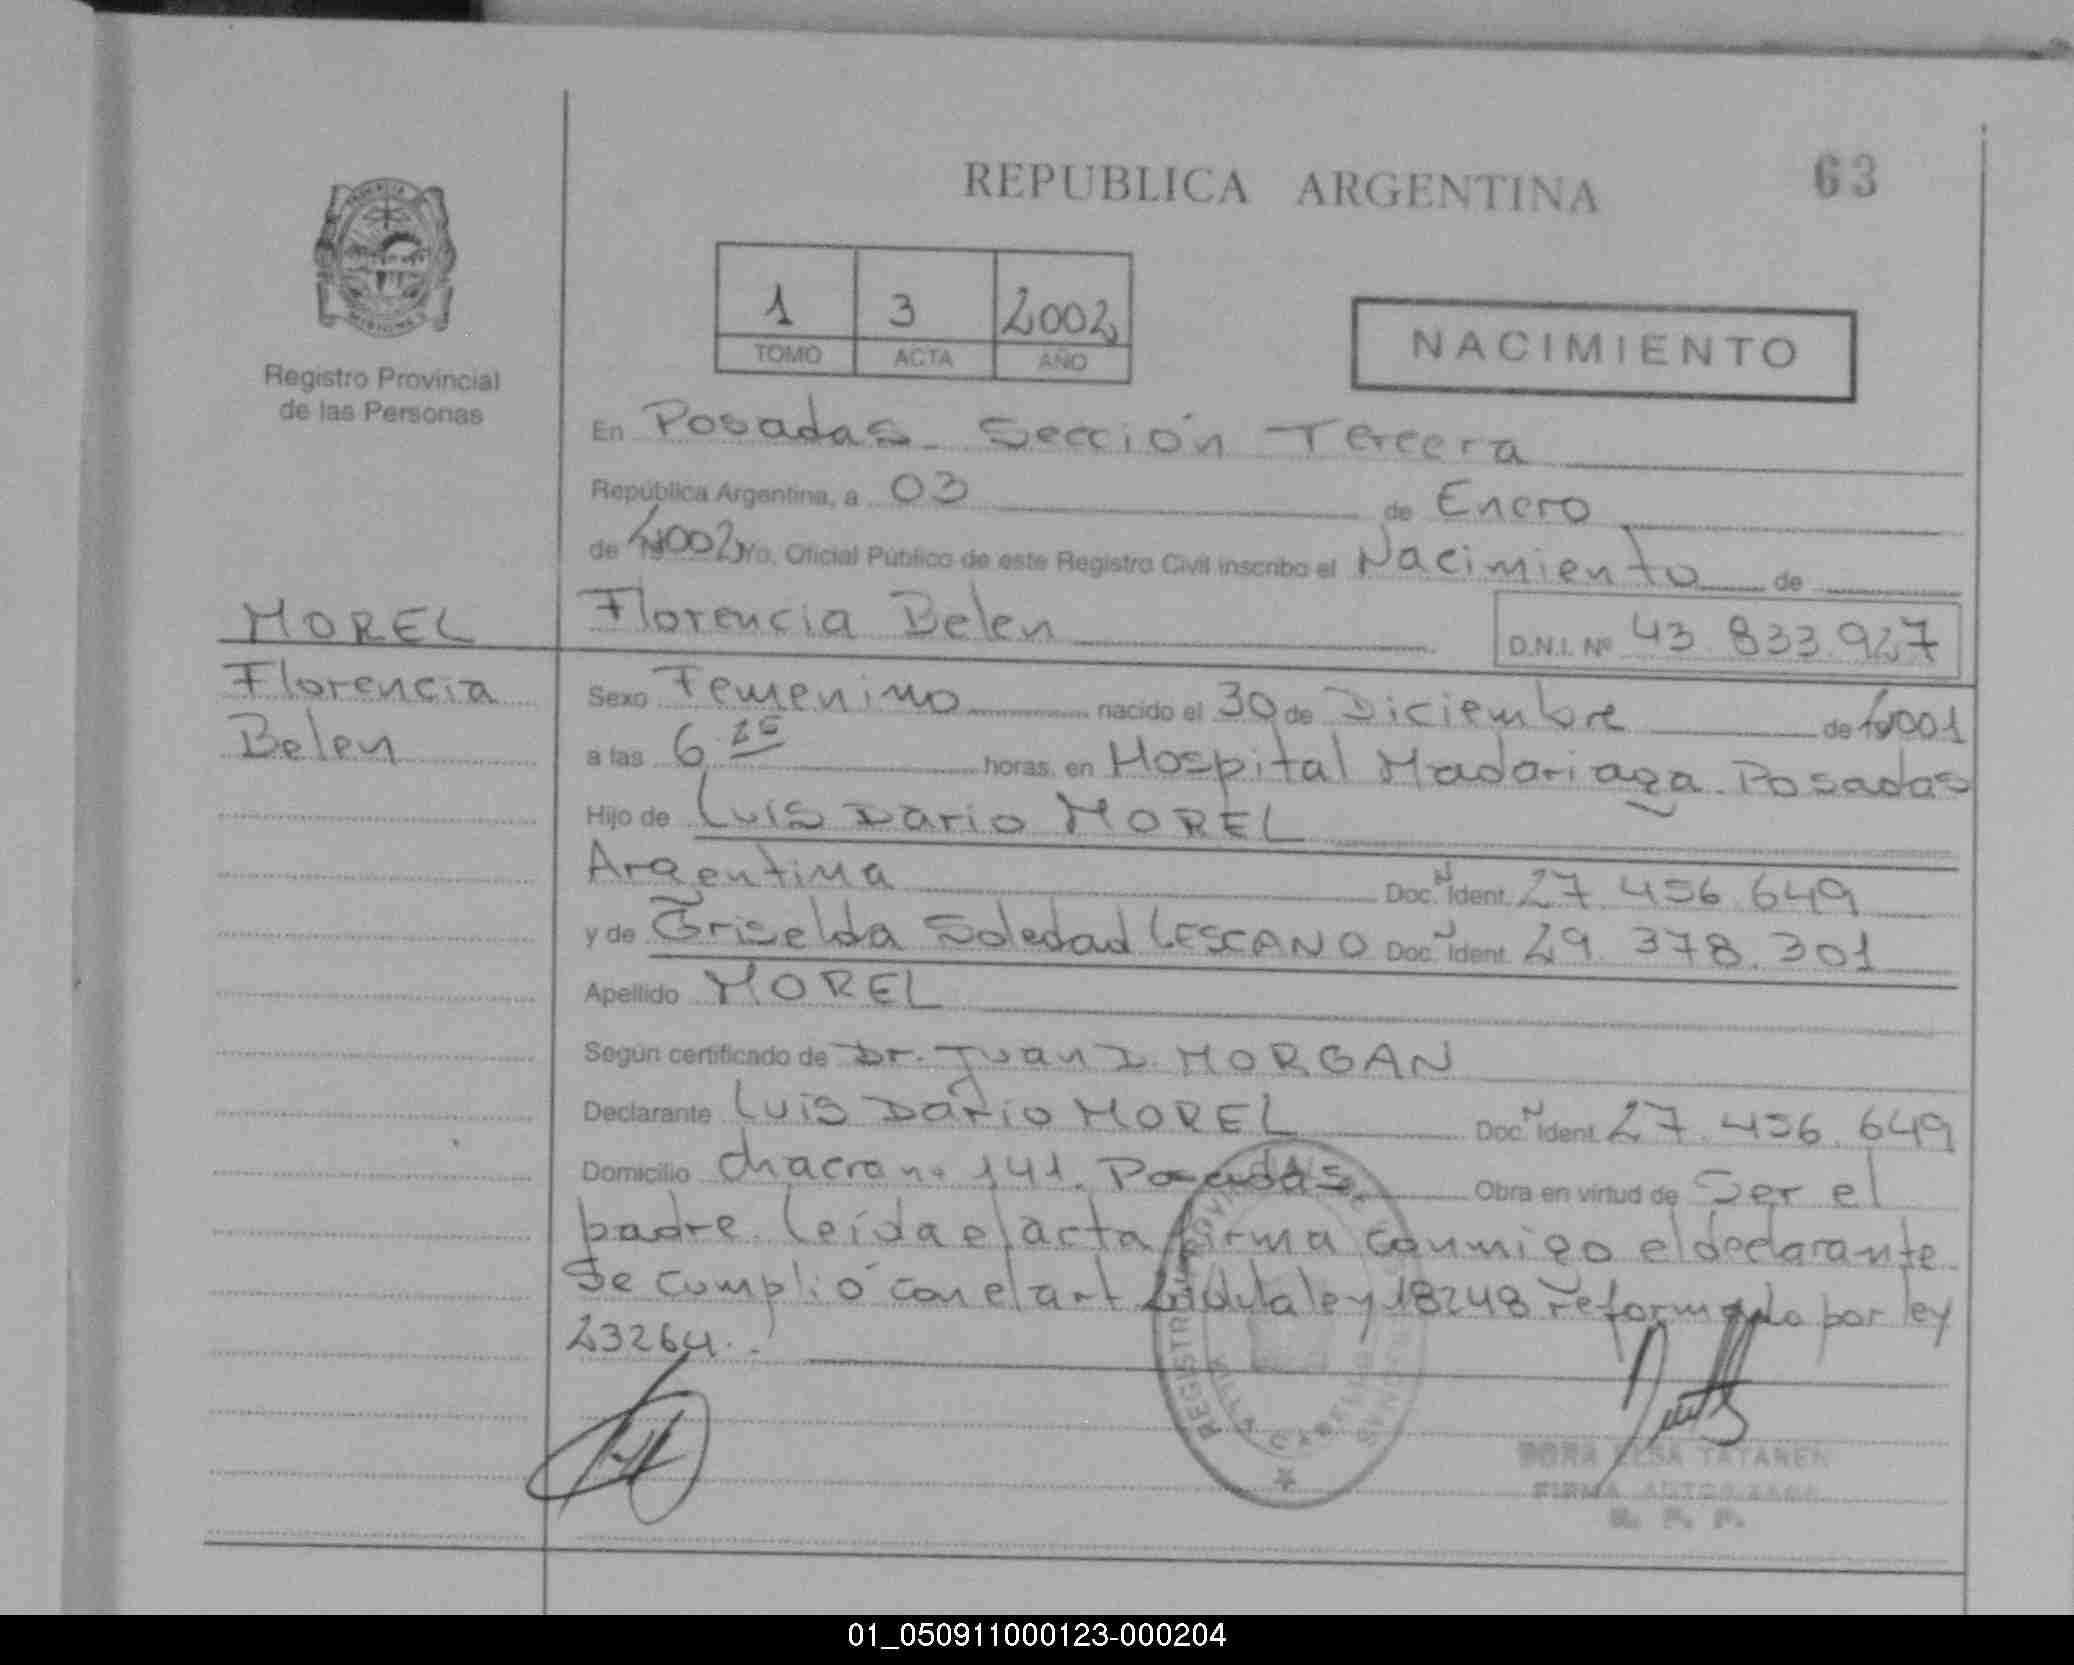 REPUBLICA ARGENTINA
63
1 3 2002
TOMO ACTA AÑO
NACIMIENTO
Registro Provincial
de las Personas
En Posadas Sección Tercera
República Argentina, a 03 de Enero
de 2002 Yo, Oficial Público de este Registro Civil inscribo el Nacimiento de
MOREL
Florencia Belen D.N.I. Nº 43.833.927
Florencia
Belen
Sexo Femenino nacido el 30 de Diciembre de 2001
a las 6 25 horas, en Hospital Madariaga. Posadas
Hijo de Luis Dario MOREL
Argentina Doc. N Ident. 27.456.649
y de Griselda Soledad LESCANO Doc. N Ident. 29.378.301
Apellido MOREL
Según certificado de Dr. Juan I. MORGAN
Declarante Luis Dario MOREL Doc. N Ident. 27.456.649
Domicilio chacra nº 141. Posadas Obra en virtud de Ser el
padre. Leída el acta firma conmigo el declarante
Se cumplió con el art de la ley 18248 reformada por ley
23264.
REGISTRO
CABELLO
ELSA TATAREN
FIRMA
R. P. P.
01_050911000123-000204